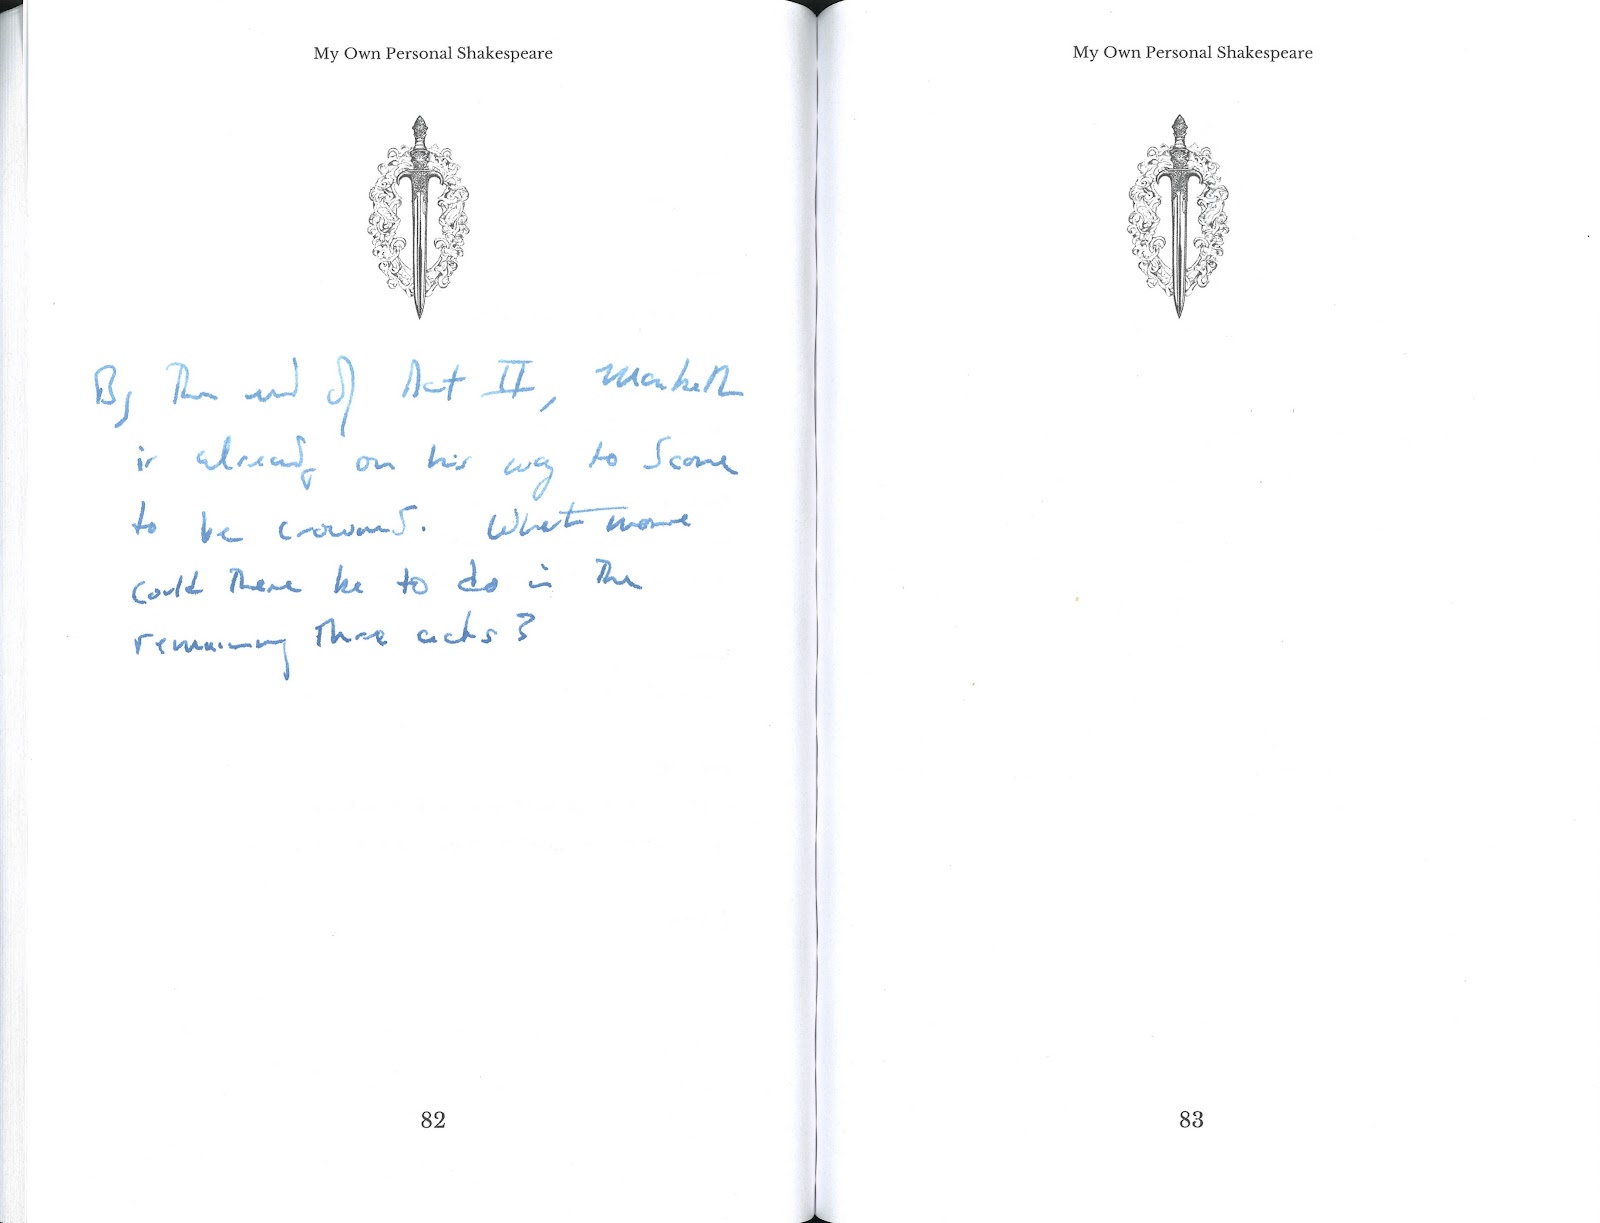 My Own Personal Shakespeare
By The end of Act II, Macbeth
is already on his way to Scone
to be crowned. What more
could there be to do in The
remaining Three acts?
82
My Own Personal Shakespeare
83